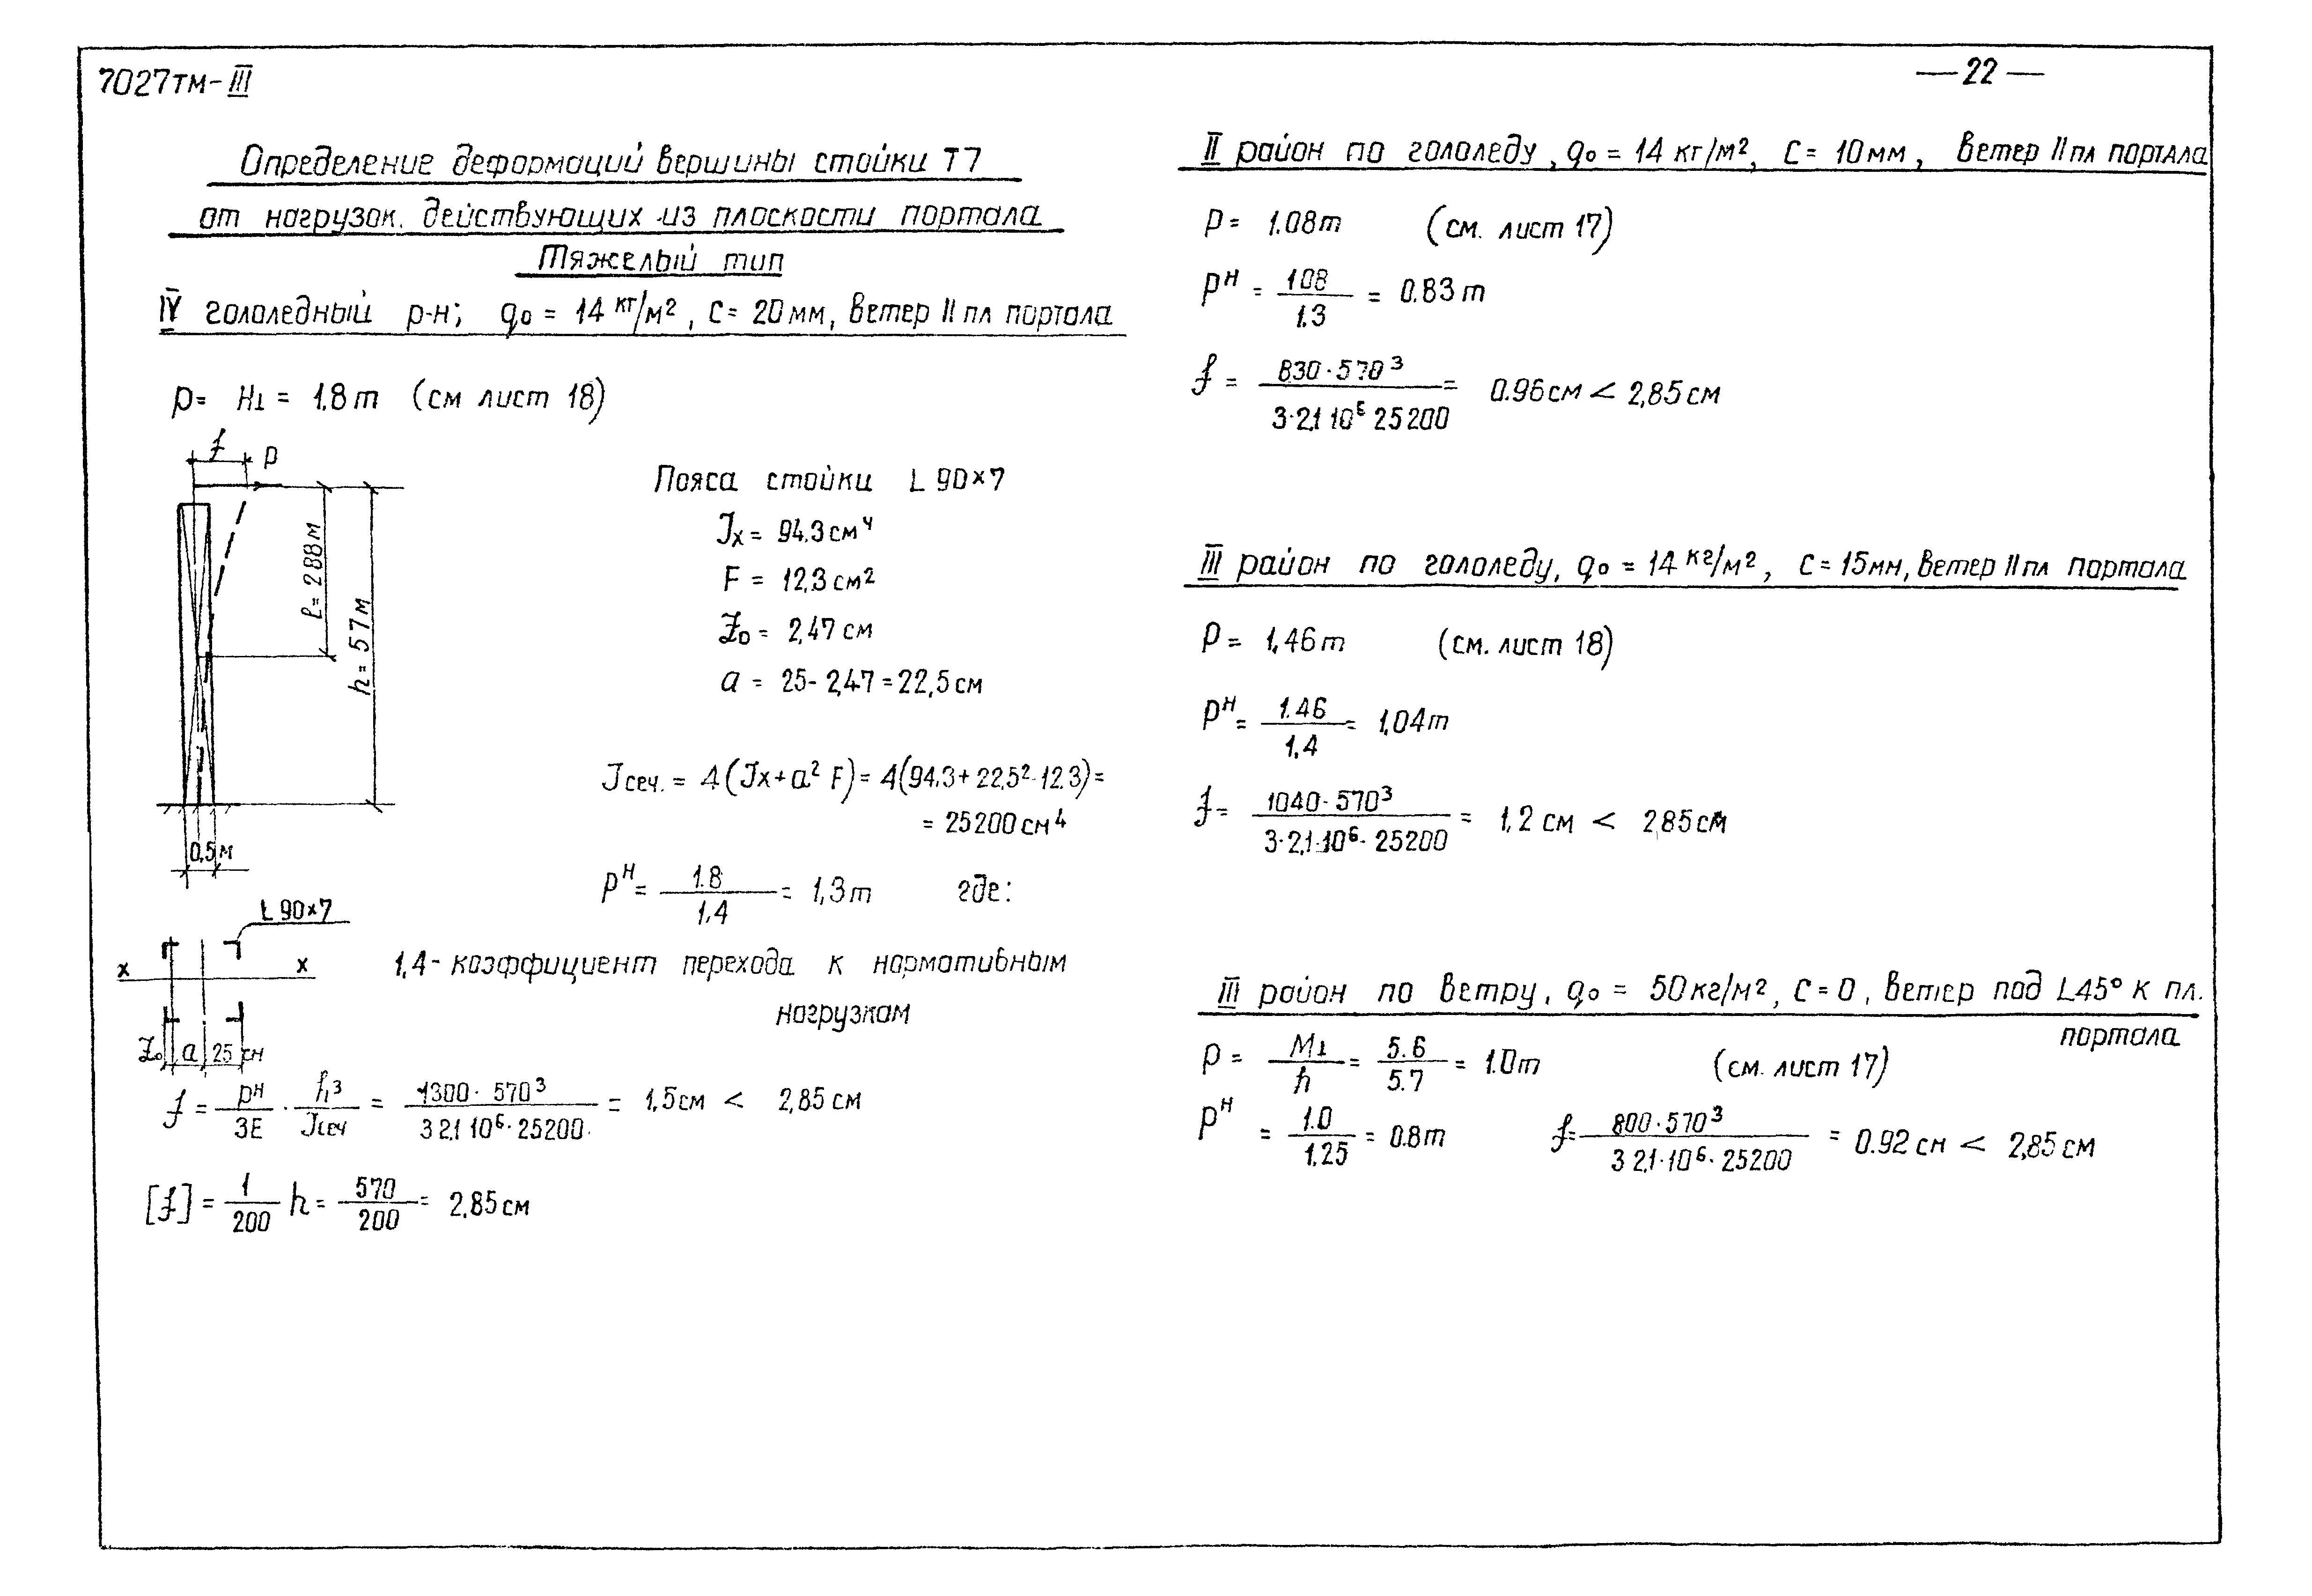 7027тм-III
— 22 —
Определение деформаций вершины стойки Т7
от нагрузок, действующих из плоскости портала
Тяжелый тип
IV гололедный р-н; q₀ = 14 кг/м², C = 20 мм, Ветер II пл портала
P = H⊥ = 1.8 т (см лист 18)
f
P
ℓ = 2 88 м
h = 5 7 м
0,5 м
Пояса стойки L 90×7
Jx = 94.3 см⁴
F = 12,3 см²
Z₀ = 2,47 см
a = 25 - 2,47 = 22,5 см
Jсеч. = 4 (Jx + a² F) = 4 (94.3 + 22,5² · 12.3) =
= 25200 см⁴
Pᴴ = 1.8 / 1.4 = 1,3 т где:
L 90×7
x x
Z₀ a 25 см
1,4 - коэффициент перехода к нормативным
нагрузкам
f = Pᴴ / 3E · h³ / Jсеч = 1300 · 570³ / 3 2,1 10⁶ · 25200 = 1,5 см < 2,85 см
[f] = 1 / 200 h = 570 / 200 = 2,85 см
II район по гололеду, q₀ = 14 кг/м², C = 10 мм, Ветер II пл портала
P = 1.08 т (см. лист 17)
Pᴴ = 108 / 1.3 = 0.83 т
f = 830 · 570³ / 3 · 2,1 10⁶ 25200 = 0.96 см < 2,85 см
III район по гололеду, q₀ = 14 кг/м², C = 15 мм, Ветер II пл портала
P = 1,46 т (см. лист 18)
Pᴴ = 1.46 / 1,4 = 1,04 т
f = 1040 · 570³ / 3 · 2,1 · 10⁶ · 25200 = 1,2 см < 2,85 см
III район по ветру, q₀ = 50 кг/м², C = 0, Ветер под L 45° к пл.
портала
P = M⊥ / h = 5.6 / 5.7 = 1.0 т (см. лист 17)
Pᴴ = 1.0 / 1.25 = 0.8 т f = 800 · 570³ / 3 2,1 · 10⁶ · 25200 = 0.92 см < 2,85 см